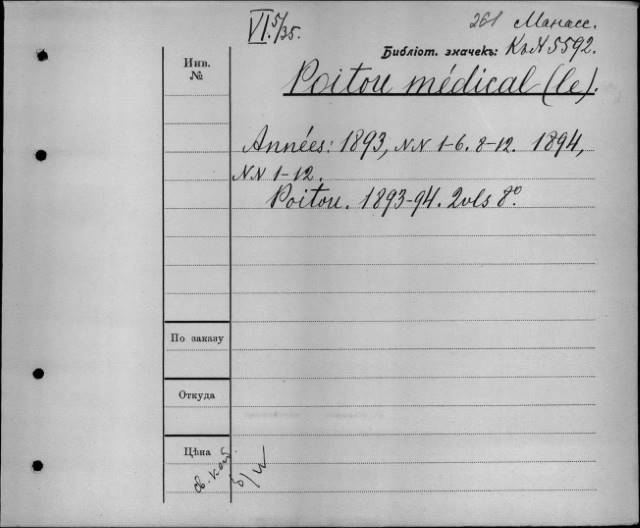 VI.5/35.
261 Манасс.
Библіот. значекъ: КъN 5592.
Инв.
№
Poitou médical (le).
Années: 1893, NN 1-6. 8-12. 1894,
NN 1-12.
Poitou. 1893-94. 2vls 8°.
По заказу
Откуда
Цѣна
б/ц